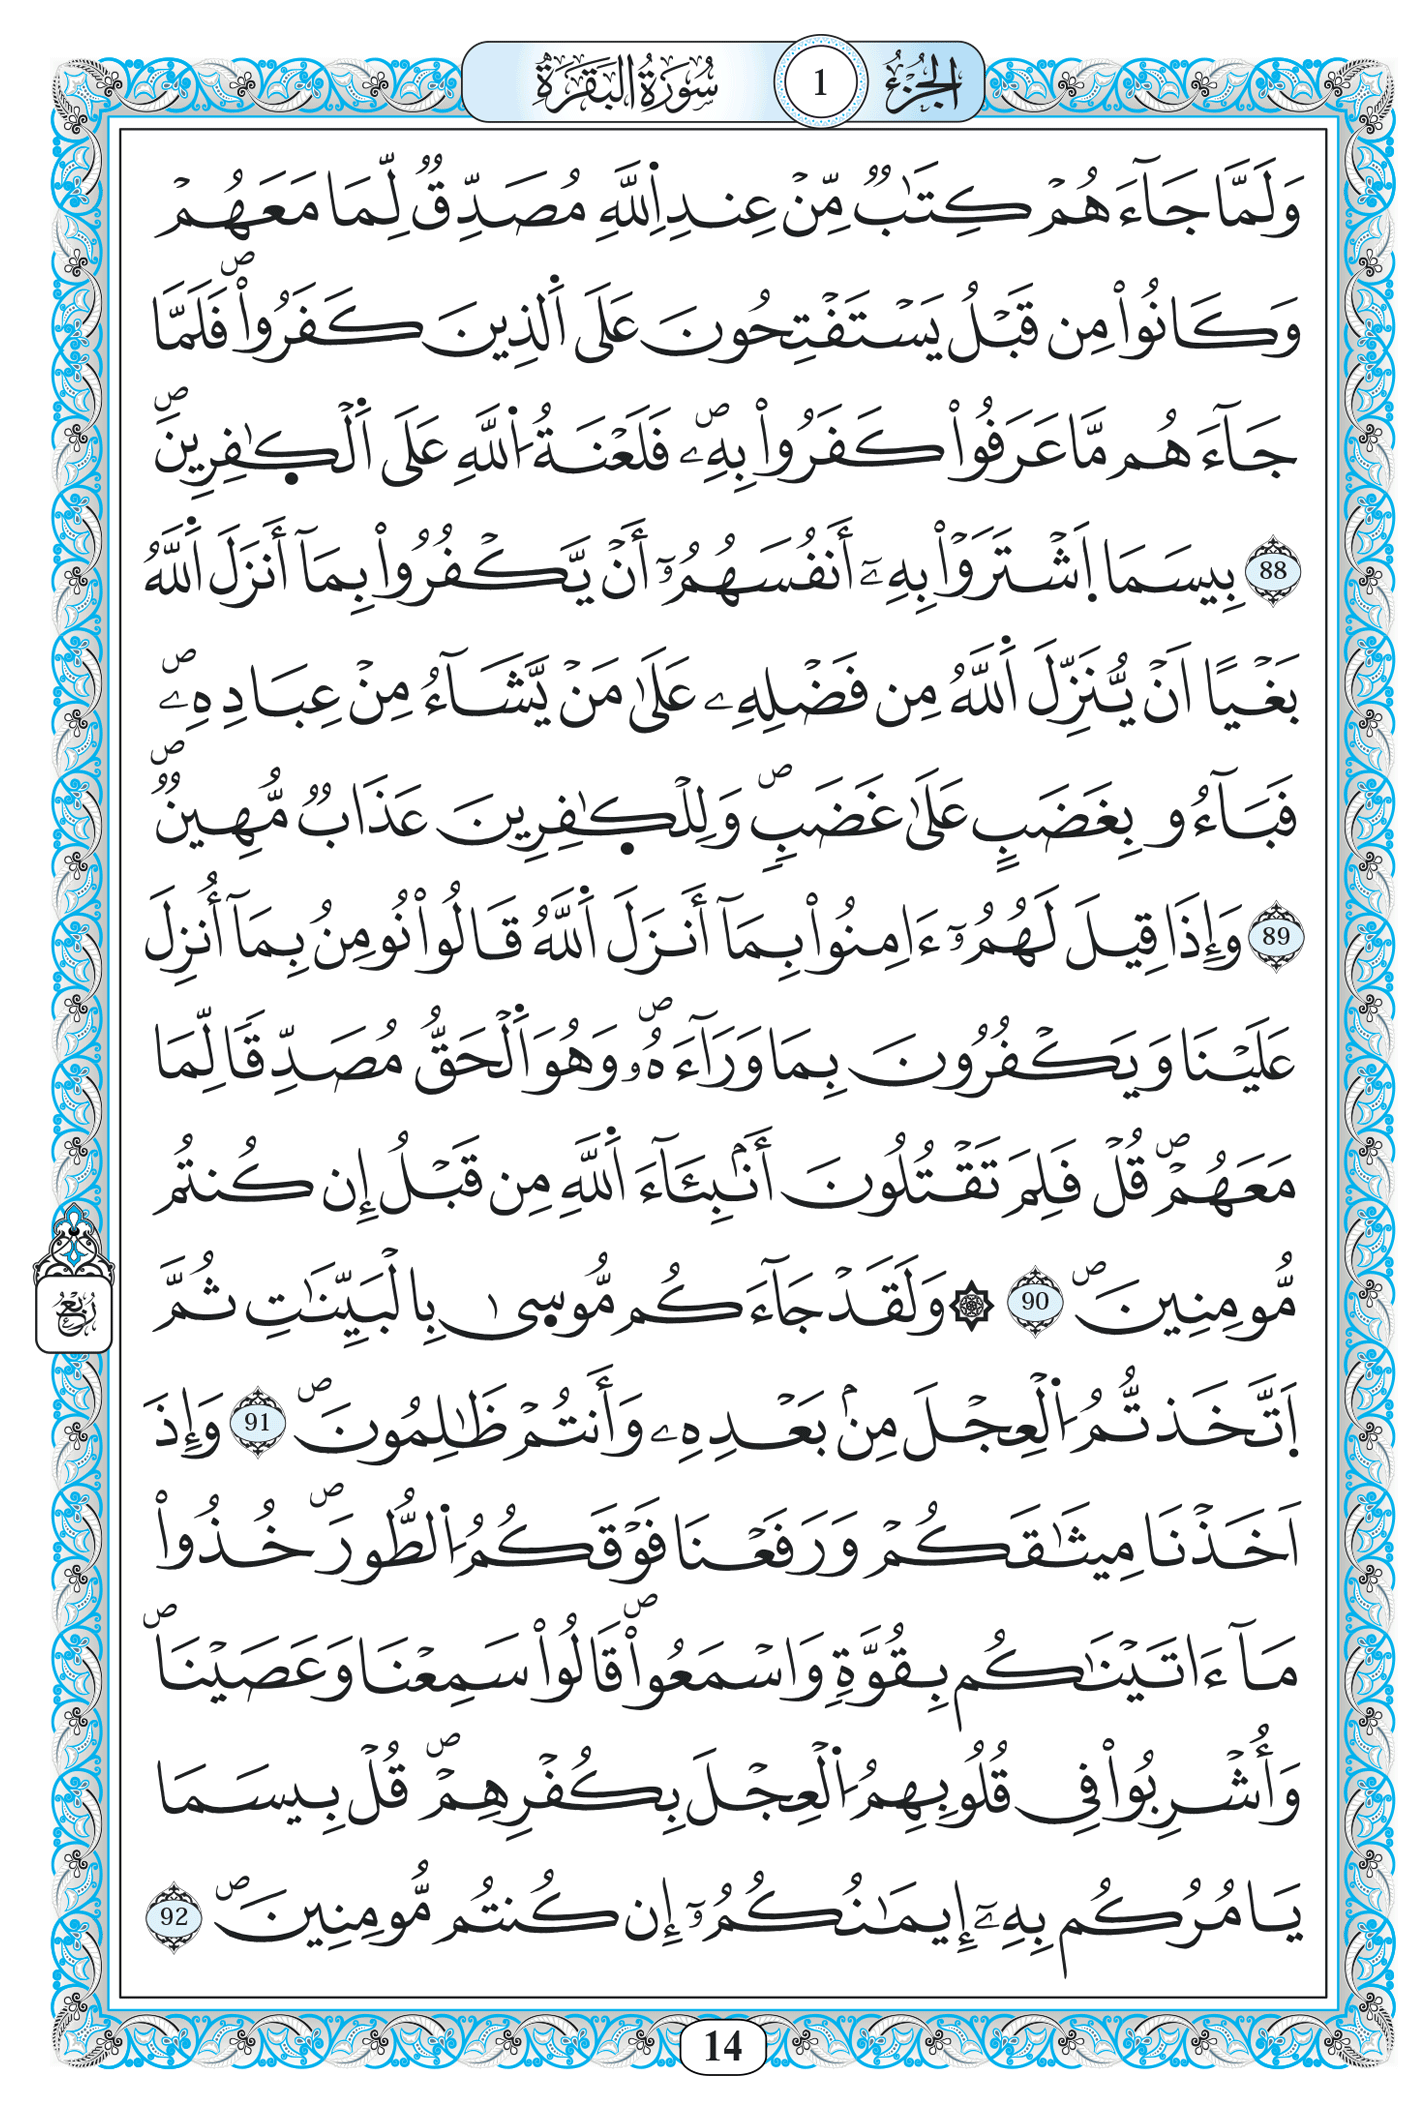 الجزء 1 سورة البقرة
وَلَمَّا جَآءَهُمْ كِتَٰبٞ مِّنْ عِندِ اِ۬للَّهِ مُصَدِّقٞ لِّمَا مَعَهُمْ
وَكَانُواْ مِن قَبْلُ يَسْتَفْتِحُونَ عَلَى اَ۬لذِينَ كَفَرُواْۖ فَلَمَّا
جَآءَهُم مَّا عَرَفُواْ كَفَرُواْ بِهِۦۖ فَلَعْنَةُ اُ۬للَّهِ عَلَى اَ۬لْكٰ۪فِرِينَۖ
88 بِيسَمَا اَ۪شْتَرَوْاْ بِهِۦٓ أَنفُسَهُمُۥٓ أَنْ يَّكْفُرُواْ بِمَآ أَنزَلَ اَ۬للَّهُ
بَغْياً اَنْ يُّنَزِّلَ اَ۬للَّهُ مِن فَضْلِهِۦ عَلَىٰ مَنْ يَّشَآءُ مِنْ عِبَادِهِۦۖ
فَبَآءُو بِغَضَبٍ عَلَىٰ غَضَبٖۖ وَلِلْكٰ۪فِرِينَ عَذَابٞ مُّهِينٞۖ
89 وَإِذَا قِيلَ لَهُمُۥٓ ءَامِنُواْ بِمَآ أَنزَلَ اَ۬للَّهُ قَالُواْ نُومِنُ بِمَآ أُنزِلَ
عَلَيْنَا وَيَكْفُرُونَ بِمَا وَرَآءَهُۥۖ وَهُوَ اَ۬لْحَقُّ مُصَدِّقاٗ لِّمَا
مَعَهُمْۖ قُلْ فَلِمَ تَقْتُلُونَ أَنۢبِئَآءَ اَ۬للَّهِ مِن قَبْلُ إِن كُنتُم
مُّومِنِينَۖ 90 ۞ وَلَقَدْ جَآءَكُم مُّوس۪ىٰ بِالْبَيِّنَٰتِ ثُمَّ
اَ۪تَّخَذتُّمُ اُ۬لْعِجْلَ مِنۢ بَعْدِهِۦ وَأَنتُمْ ظَٰلِمُونَۖ 91 وَإِذَ
اَخَذْنَا مِيثَٰقَكُمْ وَرَفَعْنَا فَوْقَكُمُ اُ۬لطُّورَۖ خُذُواْ
مَآ ءَاتَيْنَٰكُم بِقُوَّةٖ وَاسْمَعُواْۖ قَالُواْ سَمِعْنَا وَعَصَيْنَاۖ
وَأُشْرِبُواْ فِى قُلُوبِهِمُ اُ۬لْعِجْلَ بِكُفْرِهِمْۖ قُلْ بِيسَمَا
يَامُرُكُم بِهِۦٓ إِيمَٰنُكُمُۥٓ إِن كُنتُم مُّومِنِينَۖ 92
رُبُعْ
14